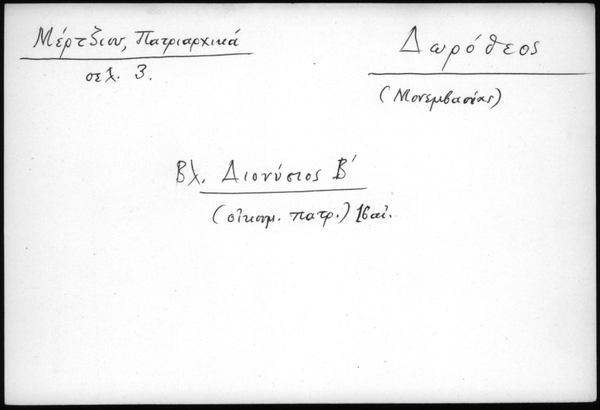 Μέρτζιου, Πατριαρχικά
σελ. 3.
Δωρόθεος
(Μονεμβασίας)
Βλ. Διονύσιος Β΄
(οἰκουμ. πατρ.) 16 αἰ.